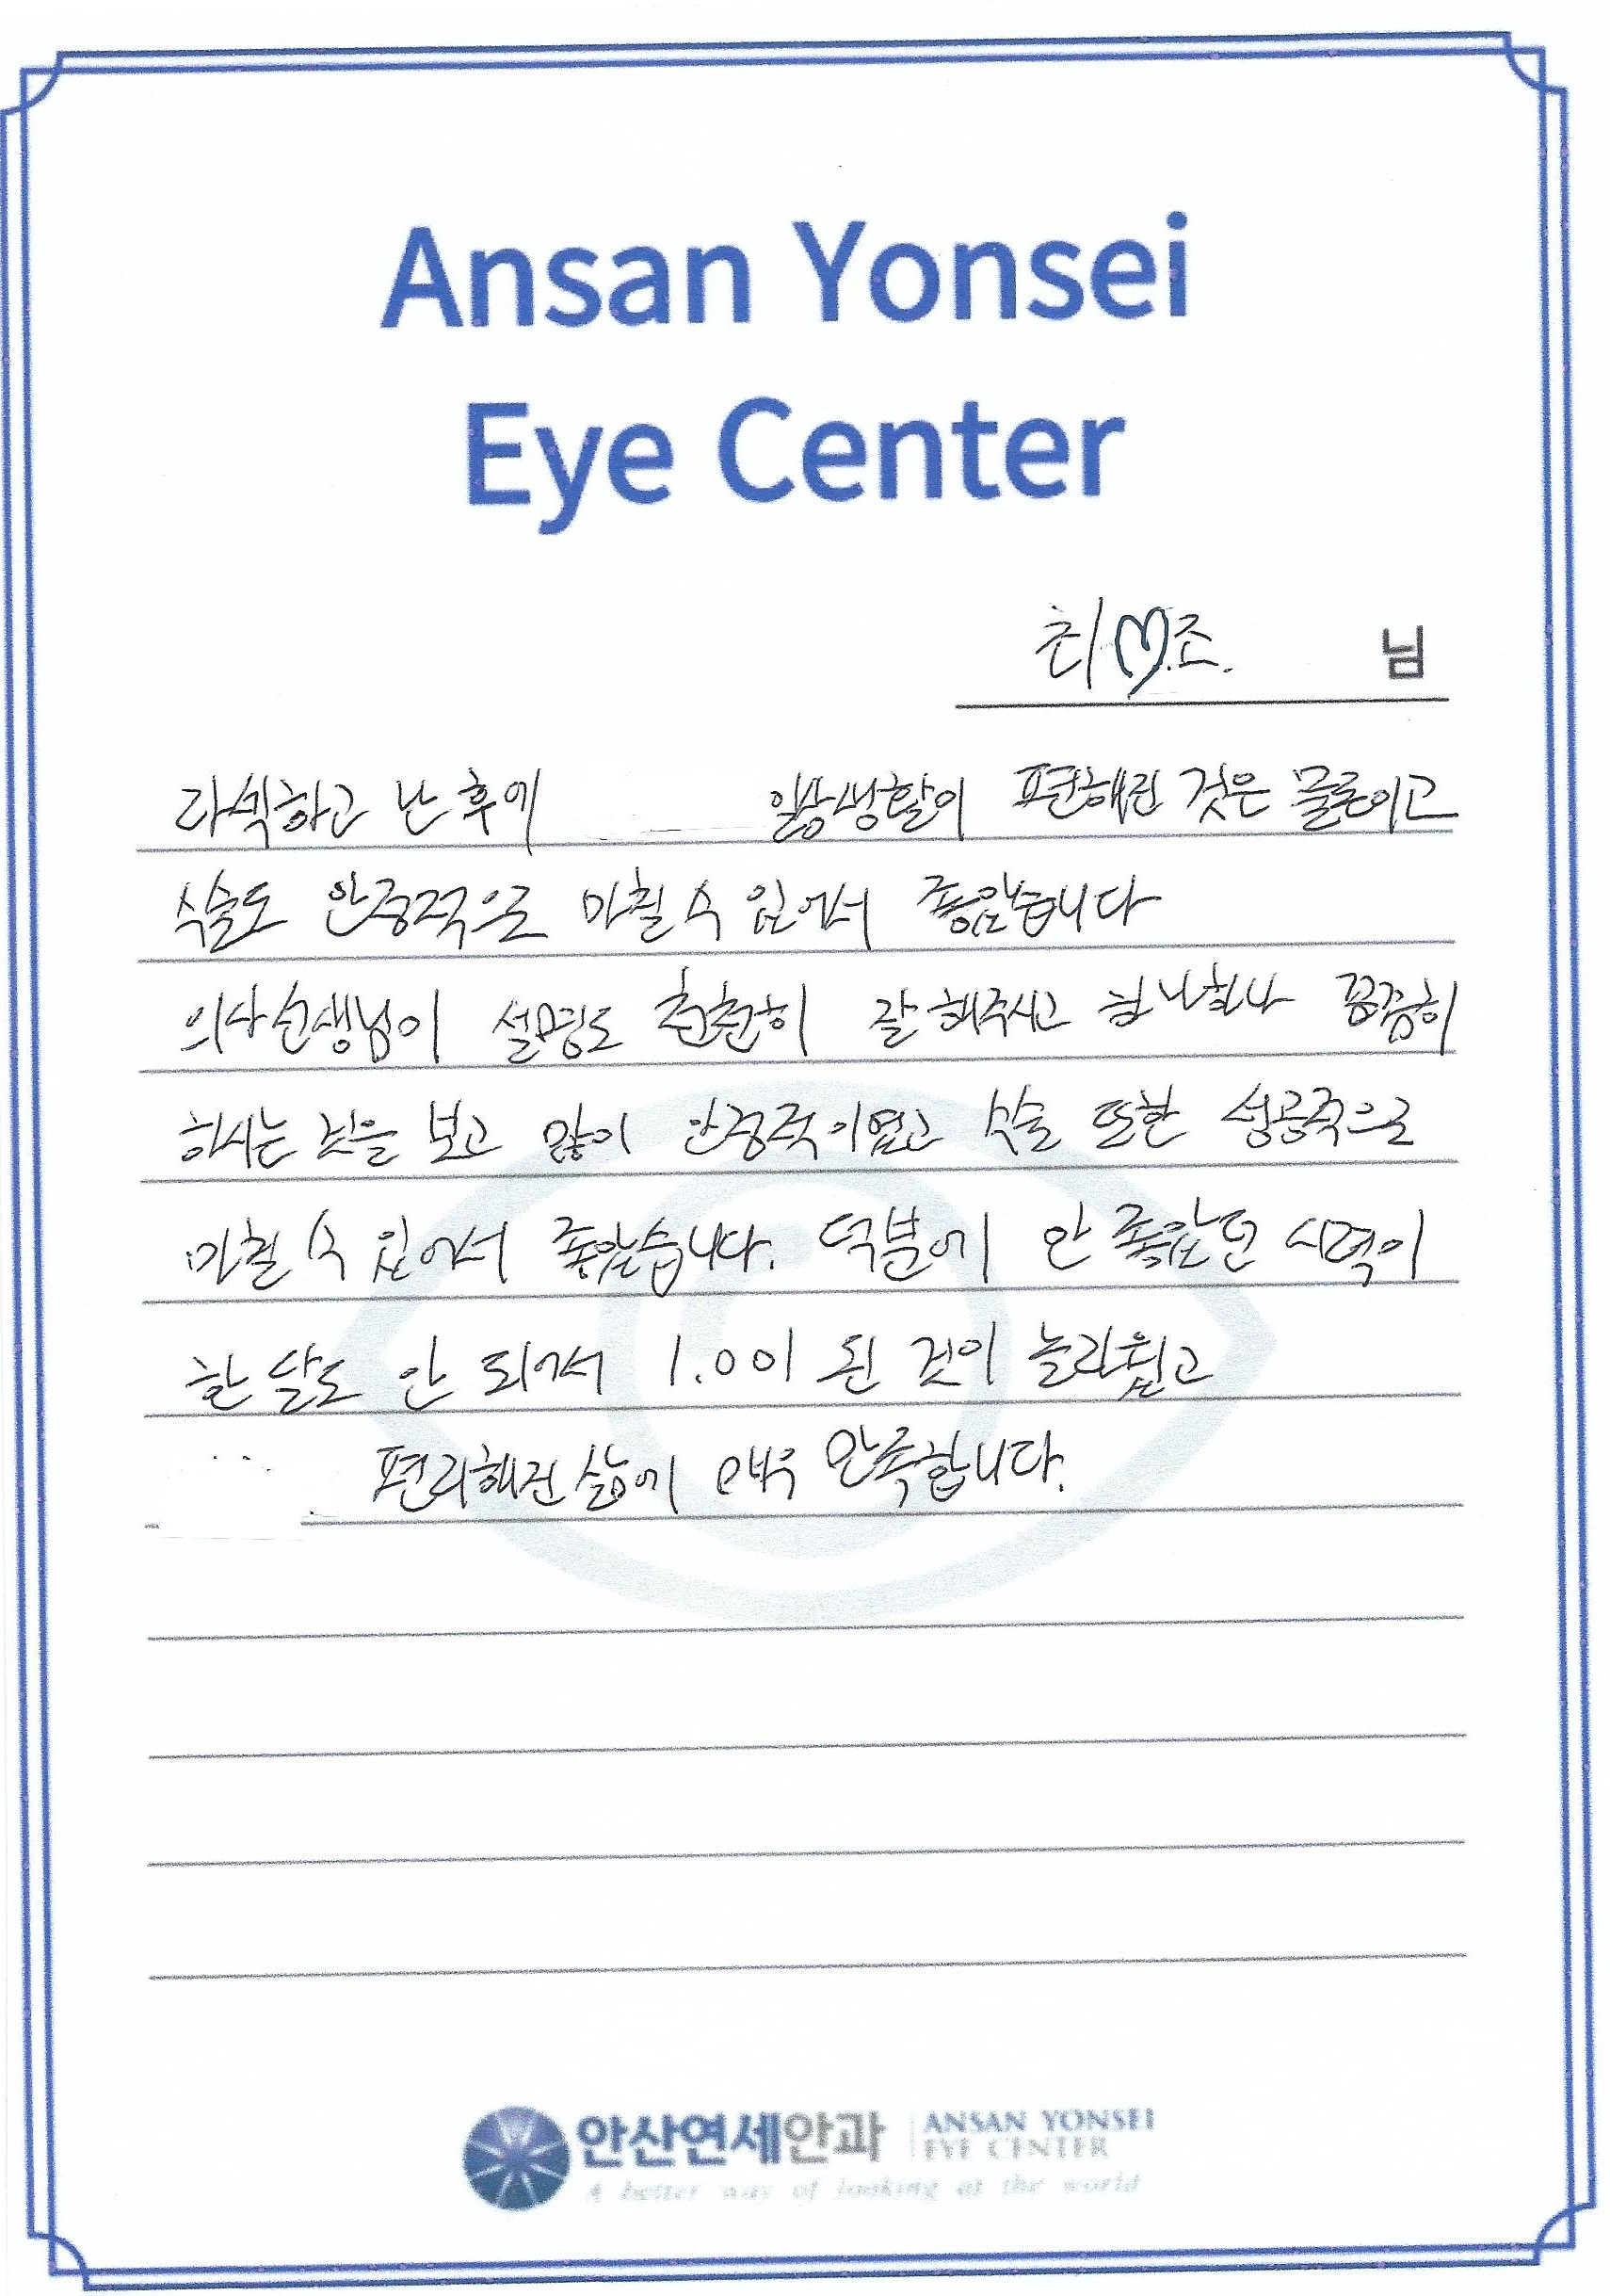 Ansan Yonsei
Eye Center
최♡조. 님
라섹하고 난 후에 일상생활이 편해진 것은 물론이고
수술도 안정적으로 마칠 수 있어서 좋았습니다
의사선생님이 설명도 천천히 잘 해주시고 하나하나 꼼꼼히
하시는 것을 보고 많이 안정적이였고 수술 또한 성공적으로
마칠 수 있어서 좋았습니다. 덕분에 안 좋았던 시력이
한 달도 안 되어서 1.0이 된 것이 놀라웠고
편리해진 삶에 매우 만족합니다.
안산연세안과 ANSAN YONSEI
EYE CENTER
A better way of looking at the world